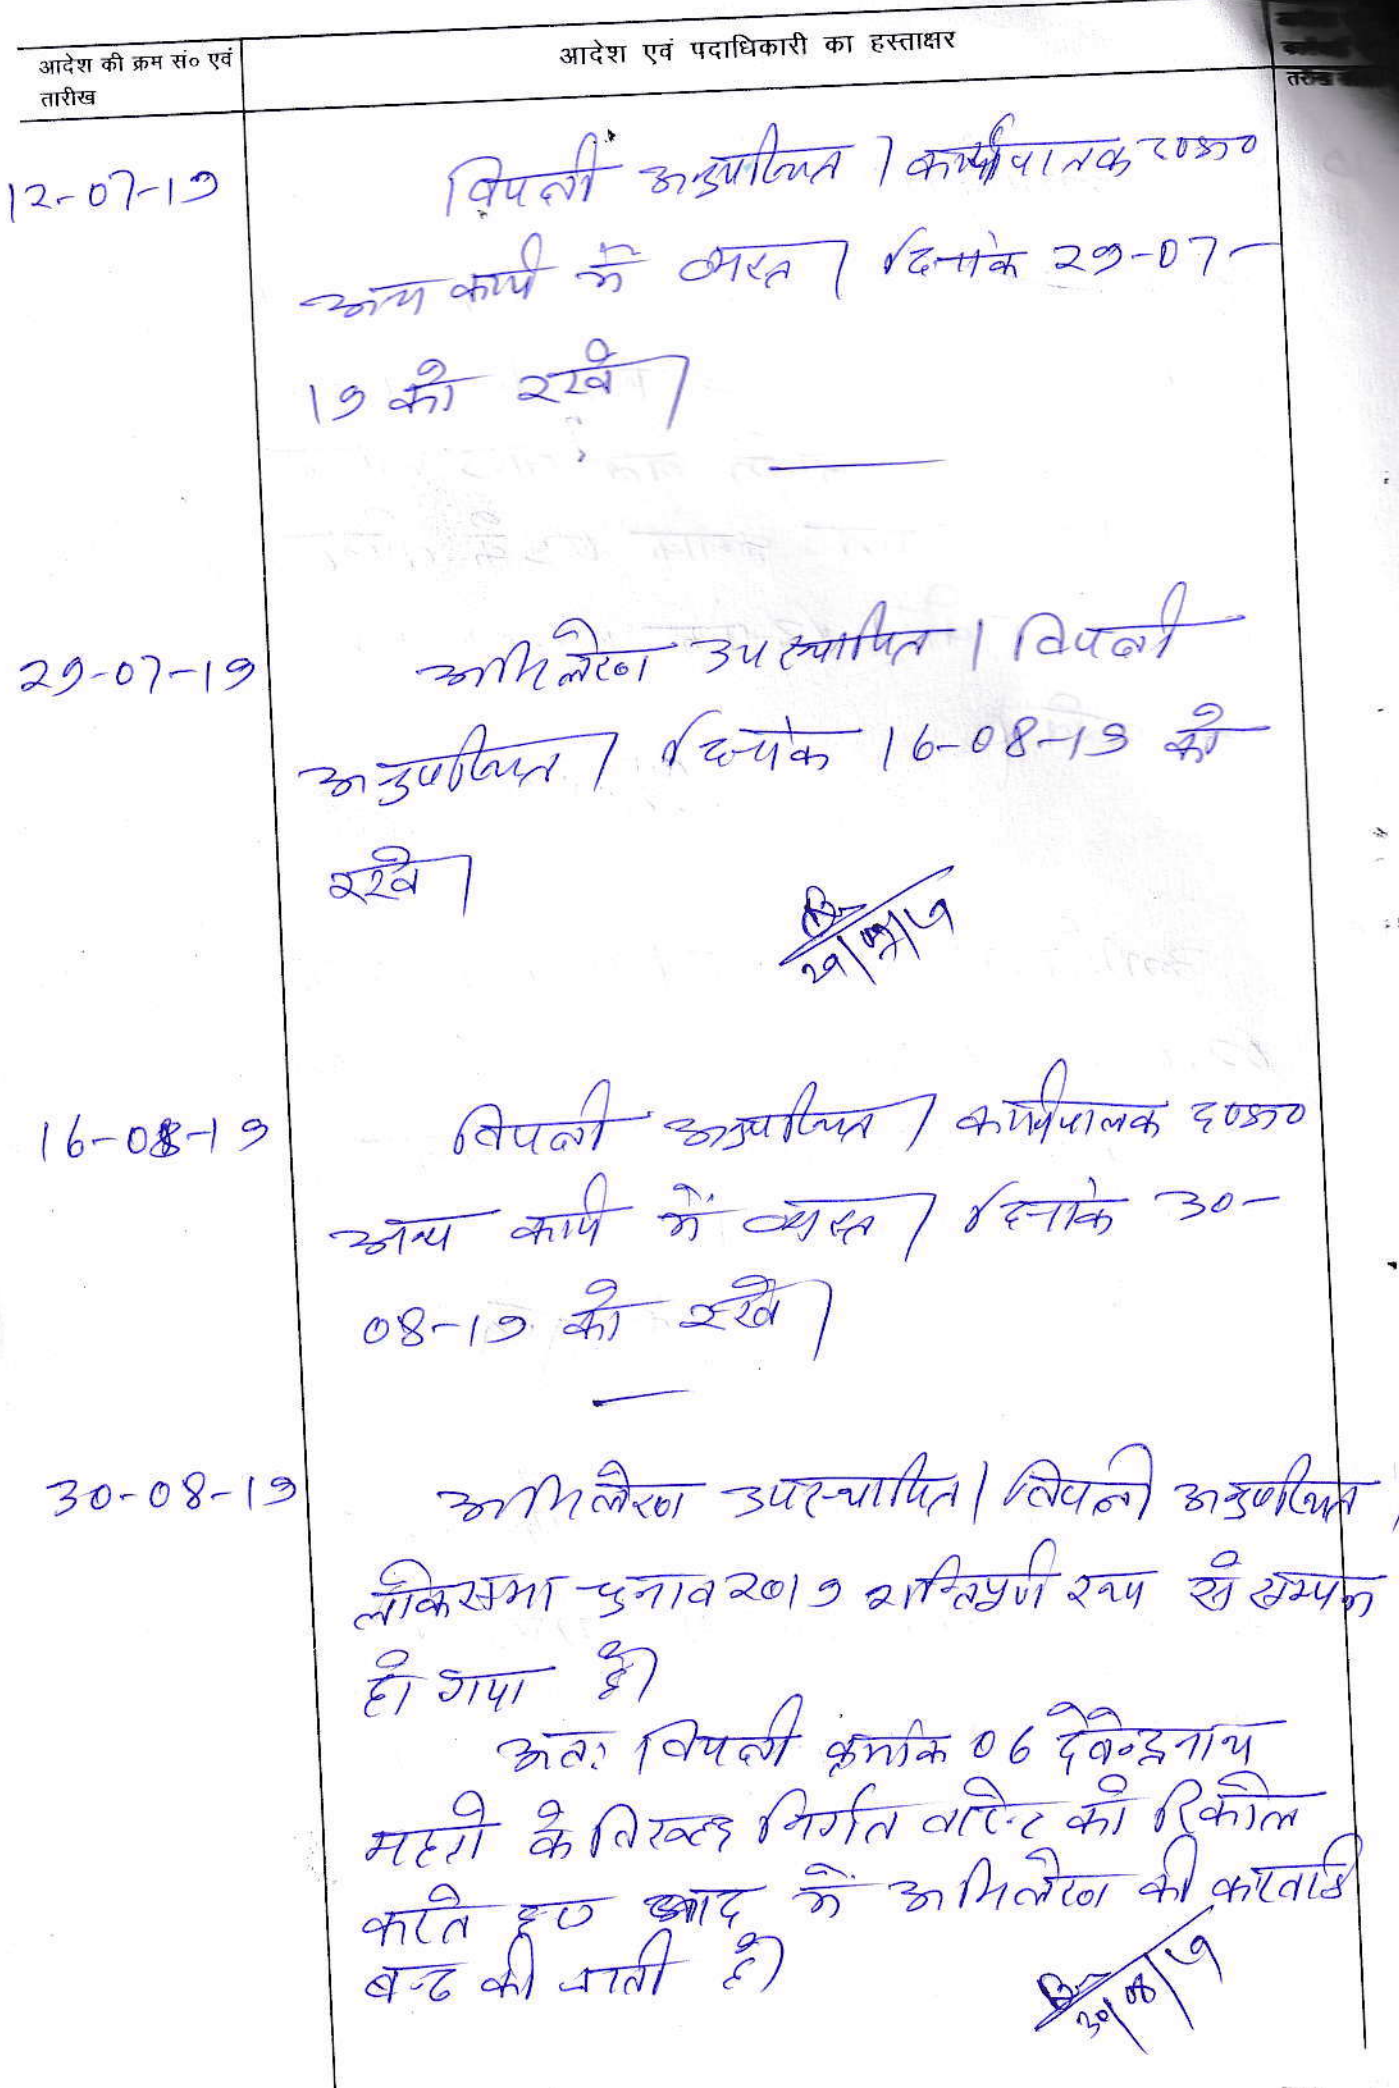 आदेश की क्रम सं० एवं
तारीख
आदेश एवं पदाधिकारी का हस्ताक्षर
12-07-19
विपक्षी अनुपस्थित । कार्यपालक द०अ०
अन्य कार्य में व्यस्त । दिनांक 29-07-
19 को रखें ।
29-07-19
अभिलेख उपस्थापित । विपक्षी
अनुपस्थित । दिनांक 16-08-19 को
रखें ।
29/07/19
16-08-19
विपक्षी अनुपस्थित । कार्यपालक द०अ०
अन्य कार्य में व्यस्त । दिनांक 30-
08-19 को रखें ।
30-08-19
अभिलेख उपस्थापित । विपक्षी अनुपस्थित ।
लोकसभा चुनाव 2019 शान्तिपूर्ण रूप से सम्पन्न
हो गया है ।
अतः विपक्षी क्रमांक 06 देवेन्द्रनाथ
महतो के विरूद्ध निर्गत वारेन्ट को रिकॉल
करते हुए वाद में अभिलेख की कारवाई
बन्द की जाती है ।
30/08/19